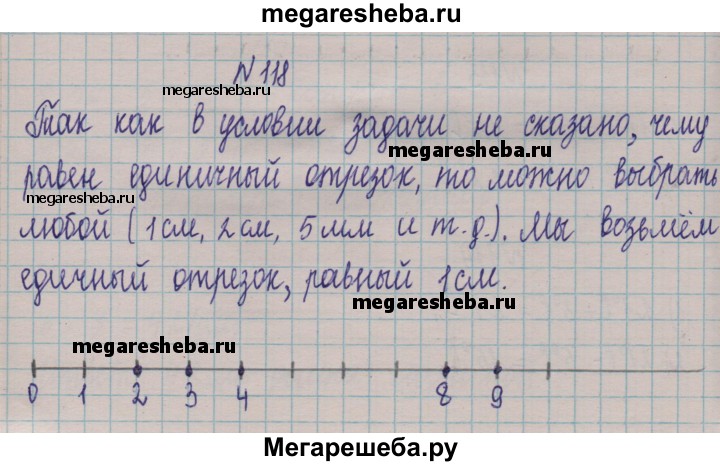 megaresheba.ru
N 118
megaresheba.ru
Так как в условии задачи не сказано, чему
megaresheba.ru
равен единичный отрезок, то можно выбрать
megaresheba.ru
любой (1 см, 2 см, 5 мм и т.д.). Мы возьмём
едичный отрезок, равный 1 см.
megaresheba.ru
megaresheba.ru
0 1 2 3 4 8 9
Мегарешеба.ру